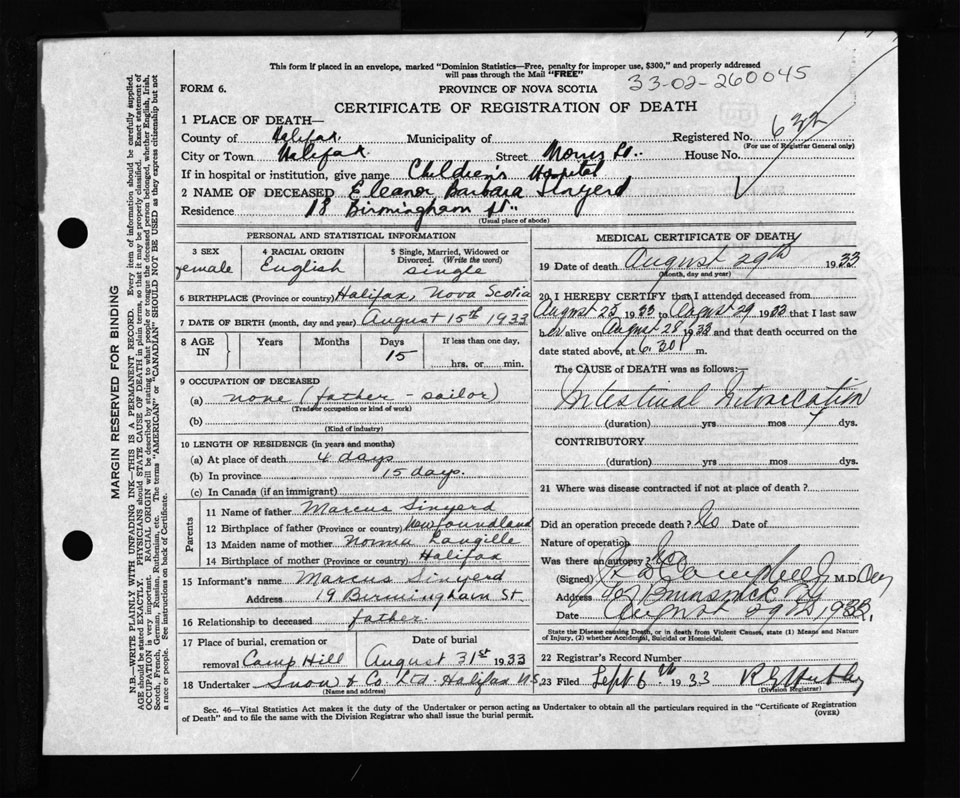 This form if placed in an envelope, marked "Dominion Statistics—Free, penalty for improper use, $300," and properly addressed
will pass through the Mail "FREE"
33-02-260045
FORM 6.
PROVINCE OF NOVA SCOTIA
CERTIFICATE OF REGISTRATION OF DEATH
1 PLACE OF DEATH—
County of Halifax Municipality of Registered No. 632
(For use of Registrar General only)
City or Town Halifax Street Morris St. House No.
If in hospital or institution, give name Children's Hospital
2 NAME OF DECEASED Eleanor Barbara Sinyerd
Residence 18 Birmingham St.
(Usual place of abode)
PERSONAL AND STATISTICAL INFORMATION
3 SEX
female
4 RACIAL ORIGIN
English
5 Single, Married, Widowed or
Divorced. (Write the word)
single
6 BIRTHPLACE (Province or country) Halifax, Nova Scotia
7 DATE OF BIRTH (month, day and year) August 15th 1933
8 AGE IN
Years Months Days
15
If less than one day,
hrs. or min.
9 OCCUPATION OF DECEASED
(a) none (father - sailor)
(Trade or occupation or kind of work)
(b)
(Kind of industry)
10 LENGTH OF RESIDENCE (in years and months)
(a) At place of death 4 days
(b) In province 15 days.
(c) In Canada (if an immigrant)
Parents
11 Name of father Marcus Sinyerd
12 Birthplace of father (Province or country) Newfoundland
13 Maiden name of mother Norma Langille
14 Birthplace of mother (Province or country) Halifax
15 Informant's name Marcus Sinyerd
Address 19 Birmingham St
16 Relationship to deceased father.
17 Place of burial, cremation or
removal Camp Hill
Date of burial
August 31st 1933
18 Undertaker Snow & Co. Ltd. Halifax N.S.
(Name and address)
MEDICAL CERTIFICATE OF DEATH
19 Date of death August 29th 1933
(Month, day and year)
20 I HEREBY CERTIFY that I attended deceased from
August 25 1933 to August 29 1933 that I last saw
her alive on August 28 1933 and that death occurred on
date stated above, at 6.30 P m.
The CAUSE of DEATH was as follows:—
Intestinal Intoxication
(duration) yrs mos 7 dys.
CONTRIBUTORY
(duration) yrs. mos. dys.
21 Where was disease contracted if not at place of death?
Did an operation precede death? No Date of
Nature of operation
Was there an autopsy? No
(Signed) Campbell M.D.
Address
Date August 29th 1933.
State the Disease causing Death, or in death from Violent Causes, state (1) Means and Nature
of Injury, (2) whether Accidental, Suicidal or Homicidal.
22 Registrar's Record Number
23 Filed Sept 6th 1933
(Division Registrar)
Sec. 46—Vital Statistics Act makes it the duty of the Undertaker or person acting as Undertaker to obtain all the particulars required in the "Certificate of Registration
of Death" and to file the same with the Division Registrar who shall issue the burial permit.
(OVER)
MARGIN RESERVED FOR BINDING
N.B.—WRITE PLAINLY, WITH UNFADING INK—THIS IS A PERMANENT RECORD. Every item of information should be carefully supplied.
AGE should be stated EXACTLY. PHYSICIANS should STATE CAUSE OF DEATH in plain terms, so that it may be properly classified. Exact statement of
OCCUPATION is very important. RACIAL ORIGIN will be described by stating to what people or tongue the deceased person belonged, whether English, Irish,
Scotch, French, German, Russian, Ruthenian, etc. The terms "AMERICAN" or "CANADIAN" SHOULD NOT BE USED as they express citizenship but not
a race or people. See instructions on back of Certificate.